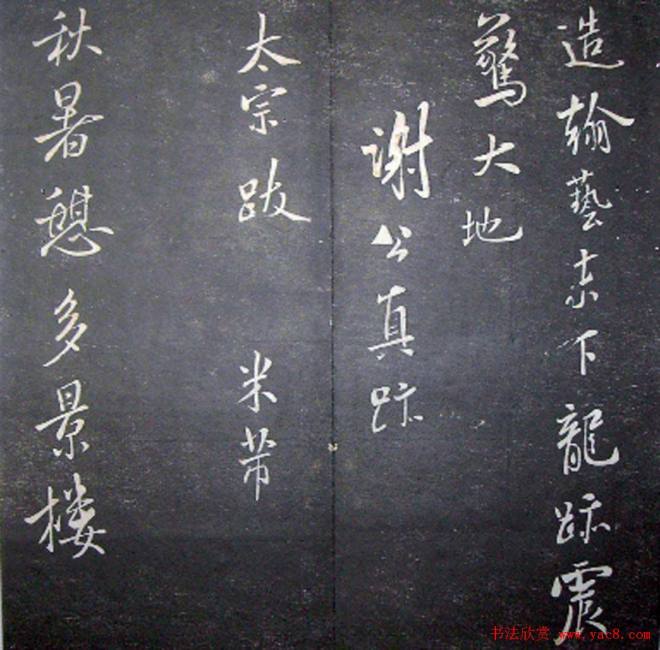 造翰藝素下龍跡震
驚大地
謝公真跡
太宗跋 米芾
秋暑憩多景楼
书法欣赏 www.yac8.com